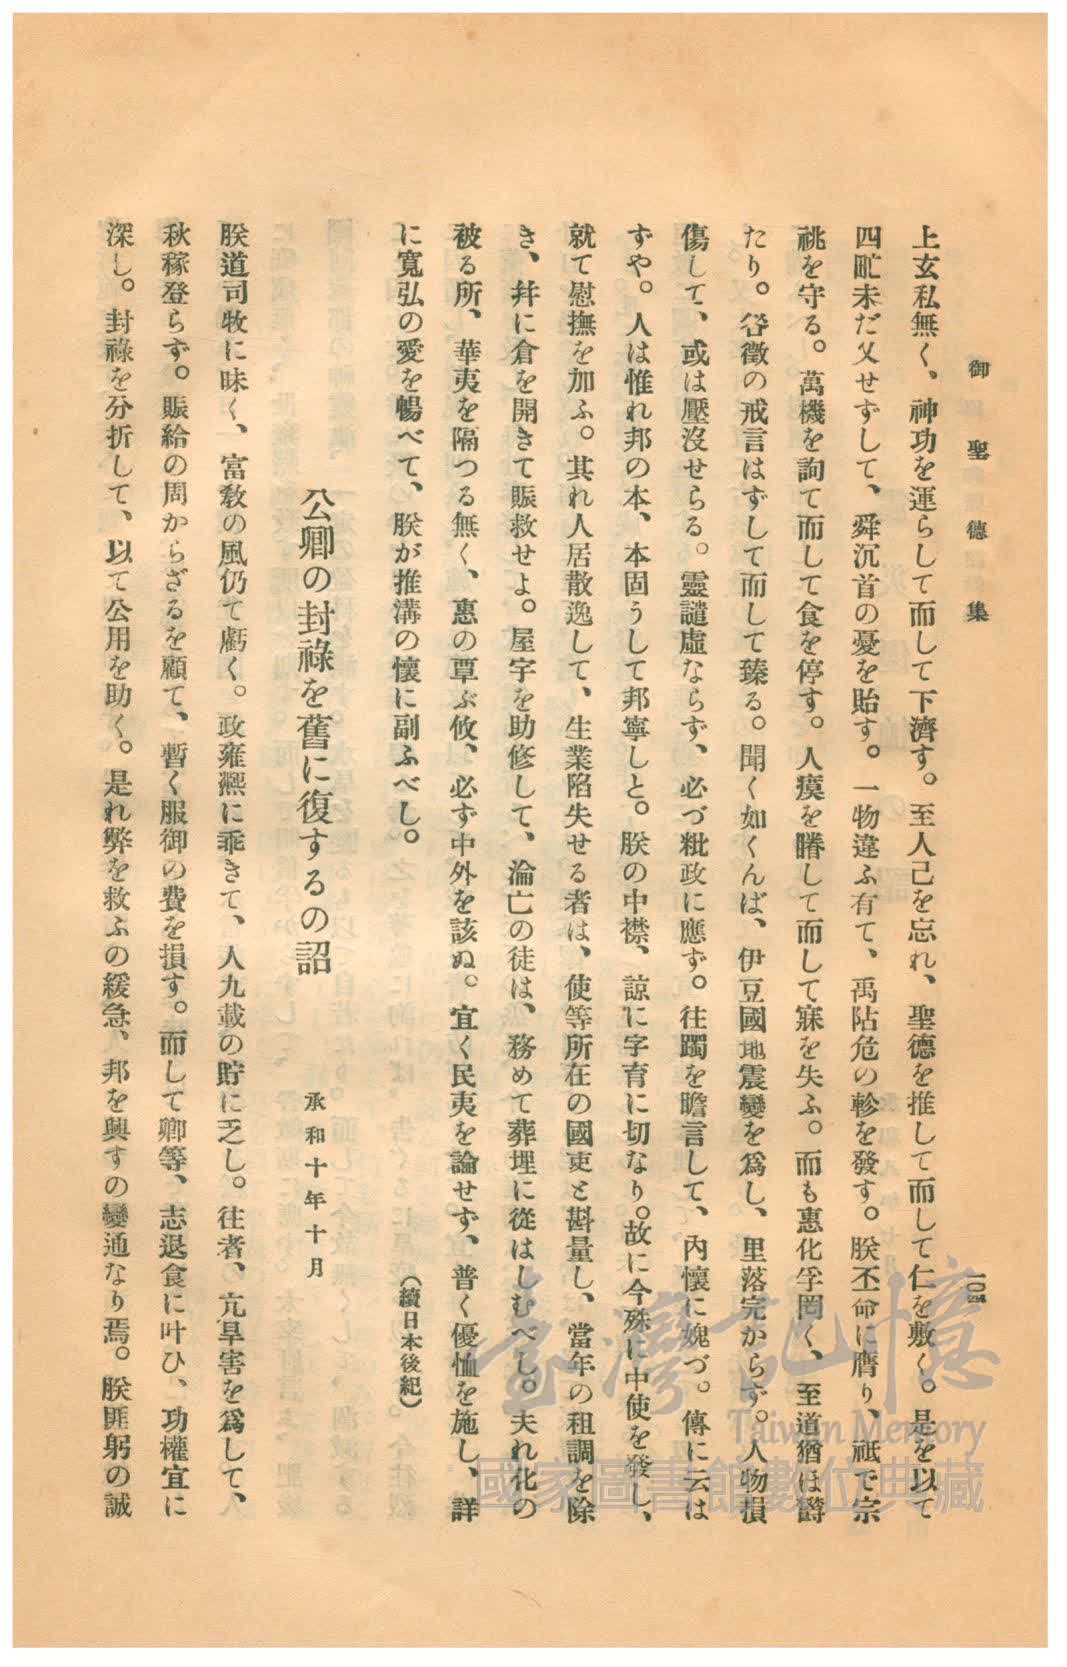 御聖德集
上玄私無く、神功を運らして而して下濟す。至人己を忘れ、聖德を推して而して仁を敷く。是を以て
四甿未だ乂せずして、舜沉首の憂を貽す。一物違ふ有て、禹阽危の軫を發す。朕丕命に膺り、祗で宗
祧を守る。萬機を詢て而して食を停す。人瘼を睠して而して寐を失ふ。而も惠化孚罔く、至道猶ほ欝
たり。咎徵の戒言はずして而して臻る。聞く如くんば、伊豆國地震變を爲し、里落完からず。人物損
傷して、或は壓沒せらる。靈譴虛ならず、必づ粃政に應ず。往躅を瞻言して、內懷に媿づ。傳に云は
ずや。人は惟れ邦の本、本固うして邦寧しと。朕の中襟、諒に字育に切なり。故に今殊に中使を發し、
就て慰撫を加ふ。其れ人居散逸して、生業陷失せる者は、使等所在の國吏と斟量し、當年の租調を除
き、幷に倉を開きて賑救せよ。屋宇を助修して、淪亡の徒は、務めて葬埋に從はしむべし。夫れ化の
被る所、華夷を隔つる無く、惠の覃ぶ攸、必ず中外を該ぬ。宜く民夷を論せず、普く優恤を施し、詳
に寬弘の愛を暢べて、朕が推溝の懷に副ふべし。
(續日本後紀)
公卿の封祿を舊に復するの詔 承和十年十月
朕道司牧に昧く、富敎の風仍て虧く。政雍凞に乖きて、人九載の貯に乏し。往者、亢旱害を爲して、
秋稼登らず。賑給の周からざるを顧て、暫く服御の費を損す。而して卿等、志退食に叶ひ、功權宜に
深し。封祿を分折して、以て公用を助く。是れ弊を救ふの緩急、邦を興すの變通なり焉。朕匪躬の誠
臺灣記憶
Taiwan Memory
國家圖書館數位典藏